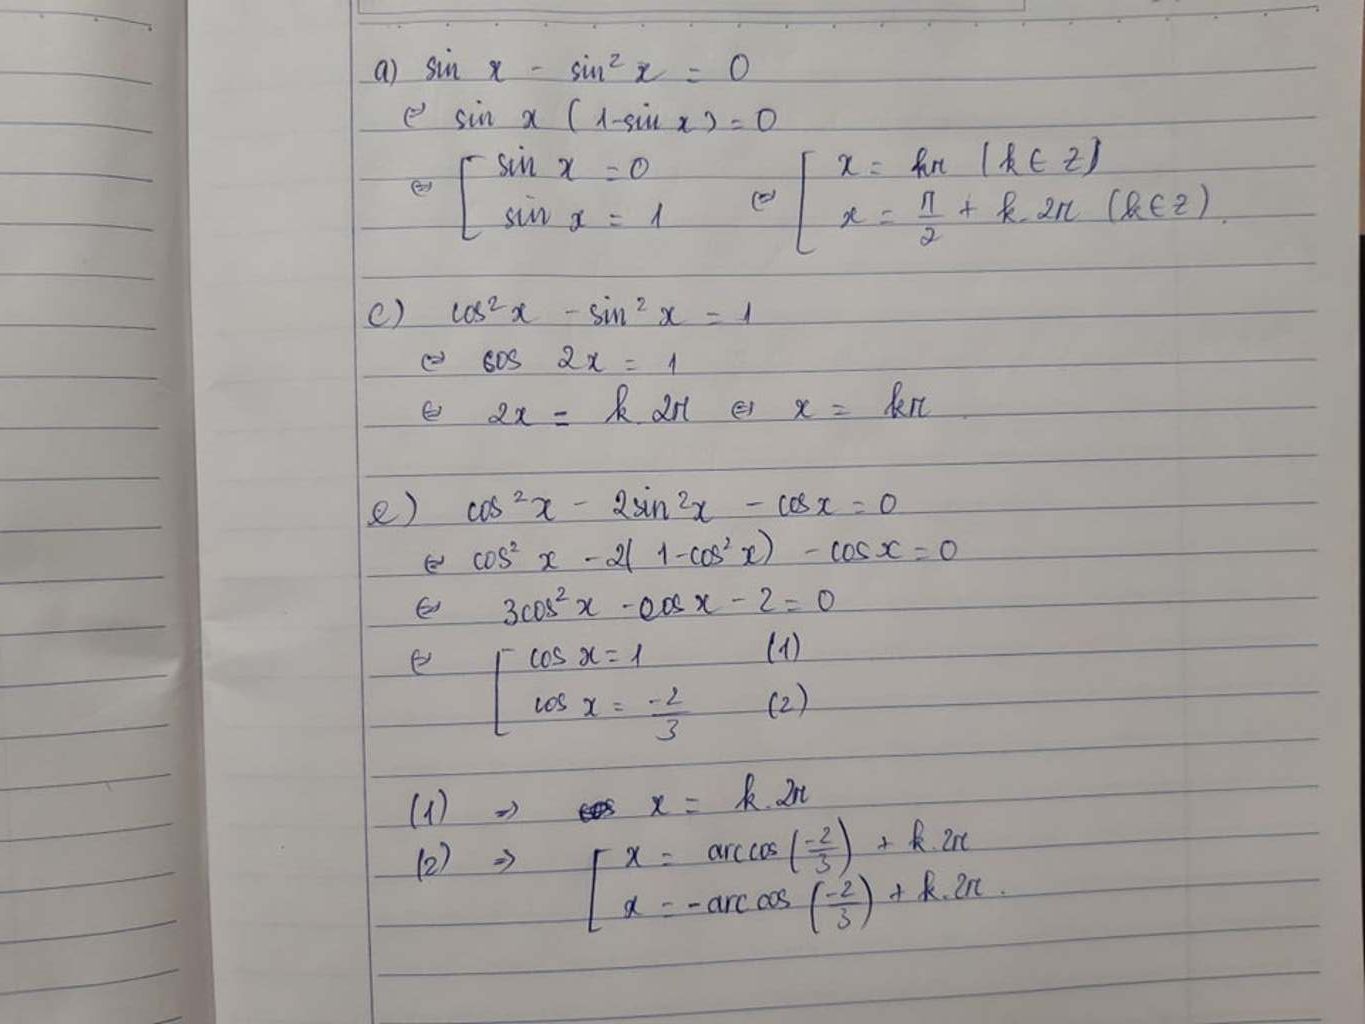 a) sin x - sin² x = 0
⇔ sin x (1-sin x) = 0
⇔ [ sin x = 0 ⇔ [ x = kπ (k ∈ Z)
sin x = 1 x = π/2 + k.2π (k ∈ Z).
c) cos² x - sin² x = 1
⇔ cos 2x = 1
⇔ 2x = k.2π ⇔ x = kπ
e) cos² x - 2sin² x - cos x = 0
⇔ cos² x - 2(1-cos² x) - cos x = 0
⇔ 3cos² x - cos x - 2 = 0
⇔ [ cos x = 1 (1)
cos x = -2/3 (2)
(1) => x = k.2π
(2) => [ x = arccos(-2/3) + k.2π
x = -arccos(-2/3) + k.2π.